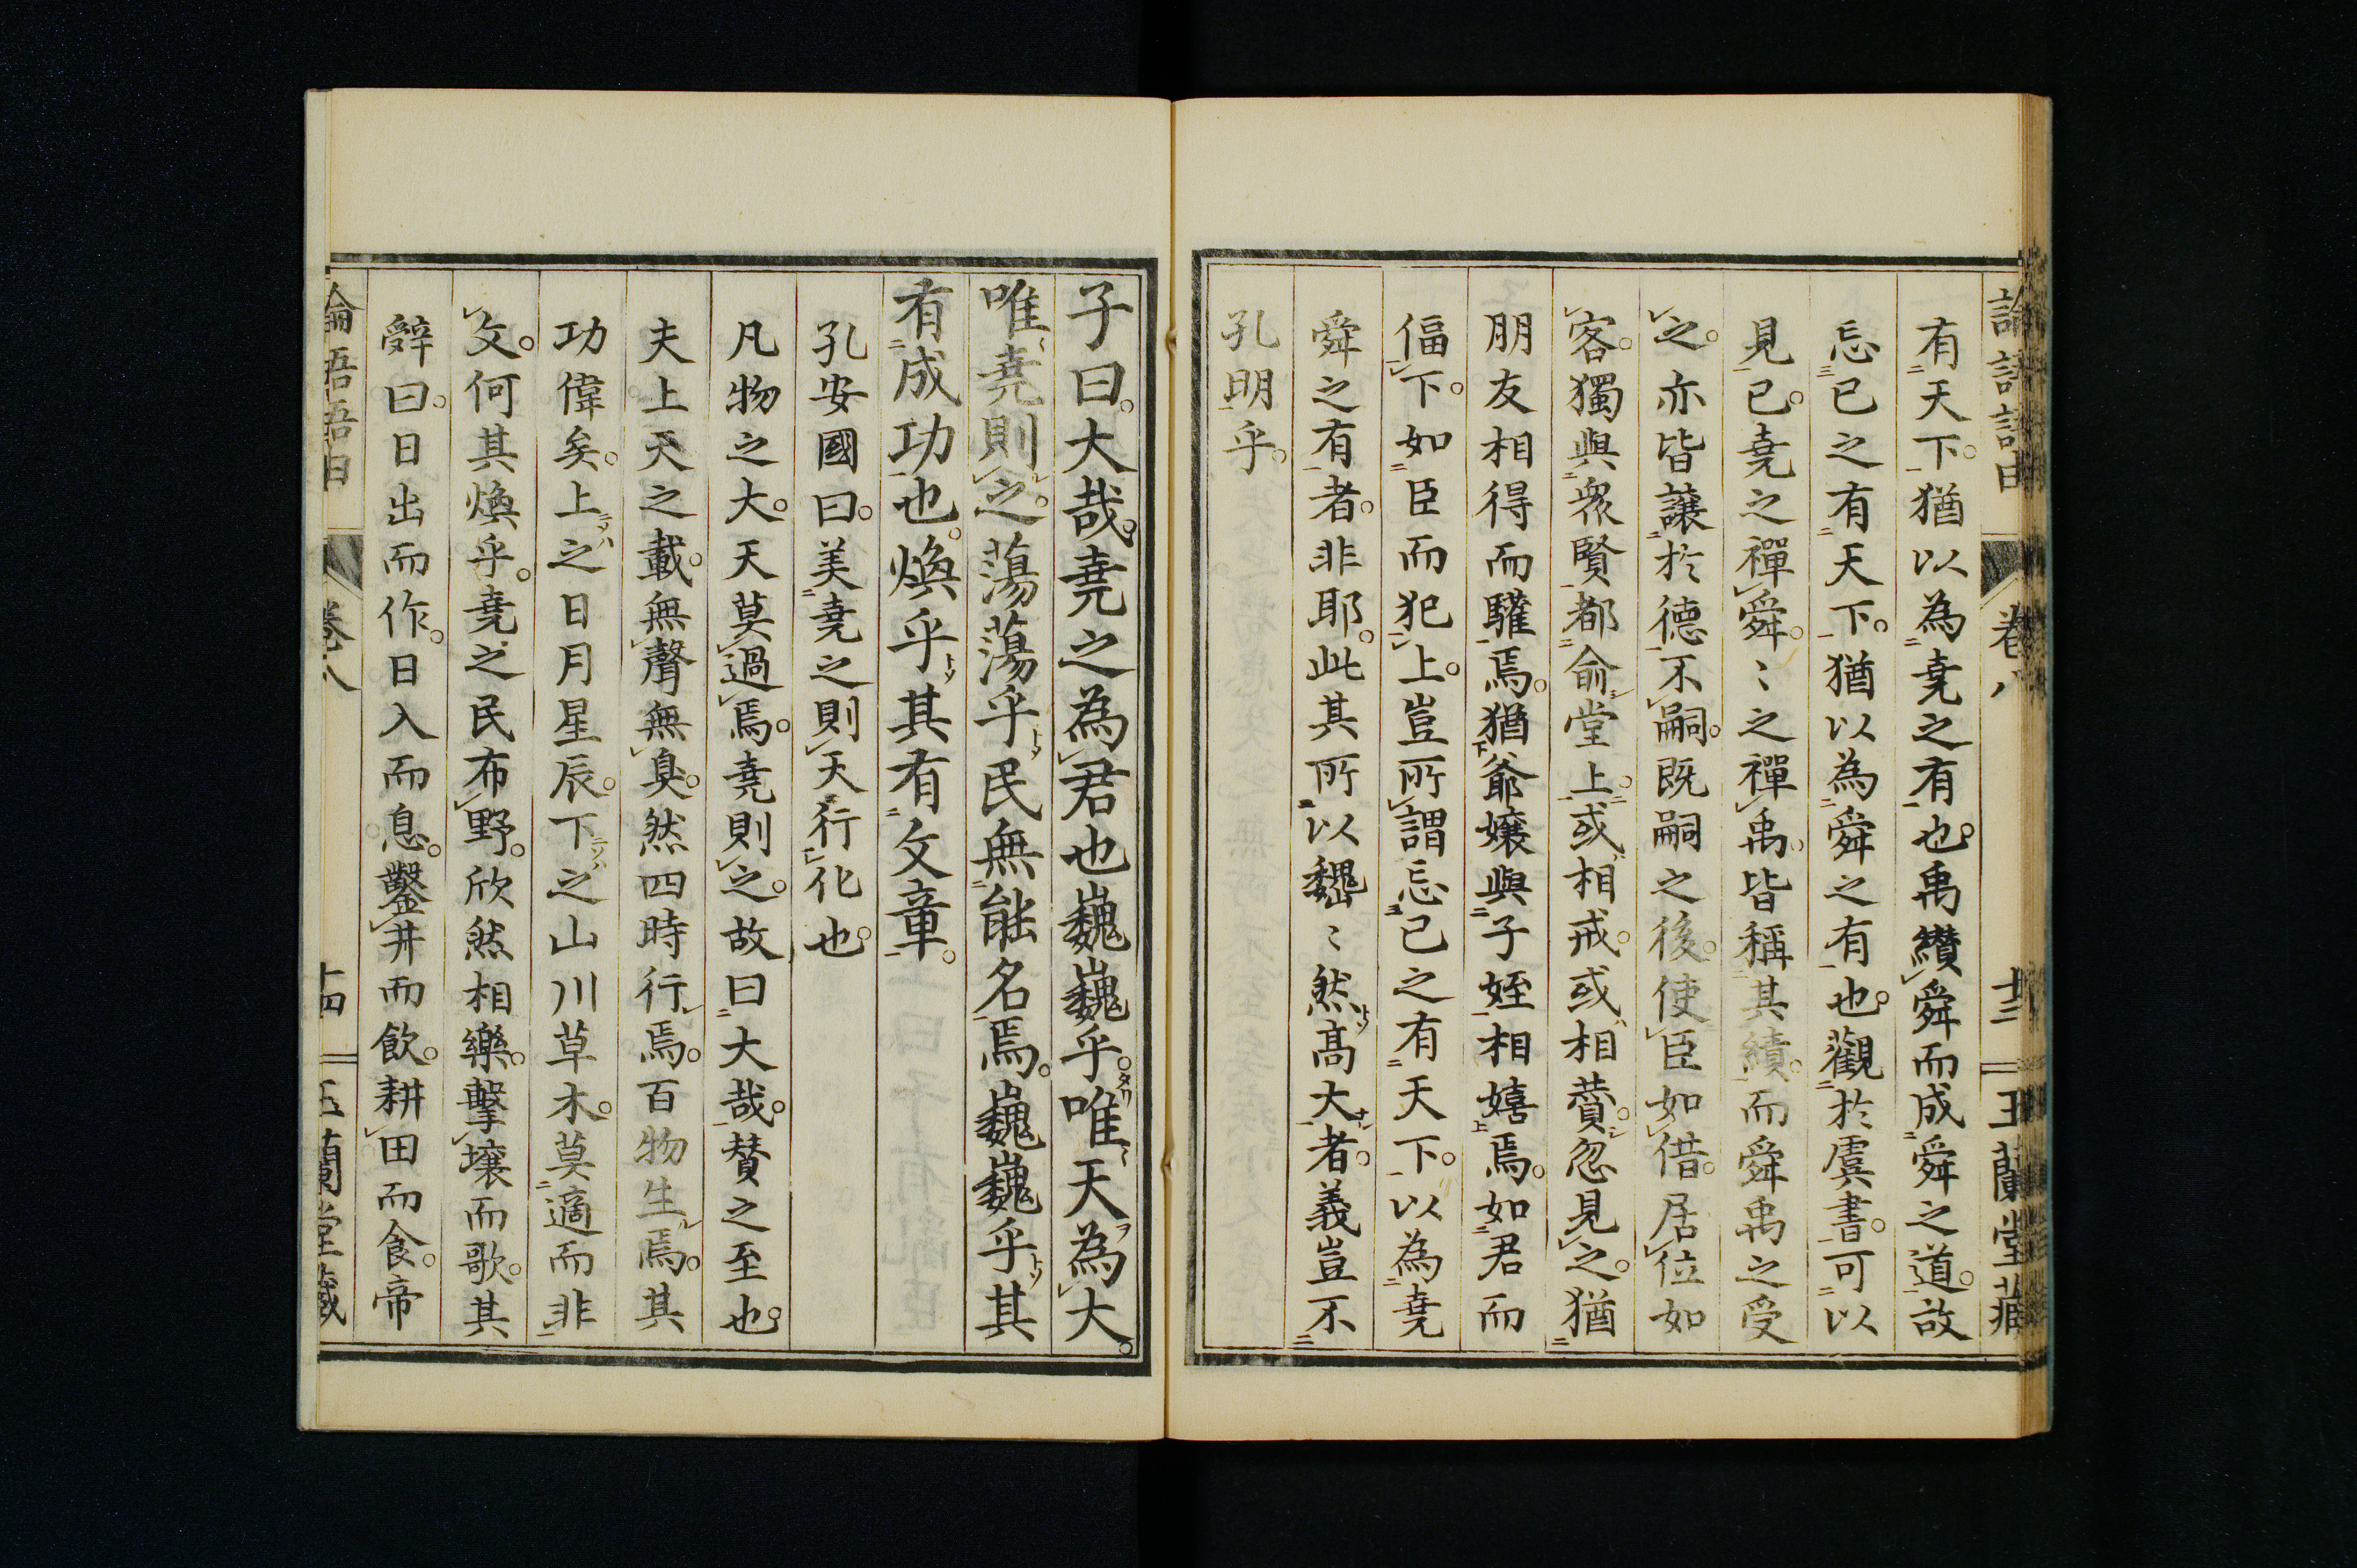 論語語由 卷八 十三 玉蘭堂藏
有天下。猶以為堯之有也。禹纘舜而成舜之道。故
忘已之有天下。猶以為舜之有也。觀於虞書。可以
見已。堯之禪舜。〻之禪禹。皆稱其績。而舜禹之受
之。亦皆讓於德不嗣。既嗣之後。使臣如借。居位如
客。獨與衆賢都俞堂上。或相戒。或相賛。忽見之。猶
朋友相得而驩焉。猶爺孃與子姪相嬉焉。如君而
偪下。如臣而犯上。豈所謂忘己之有天下。以為堯
舜之有者。非耶。此其所以巍〻然高大者。義豈不
孔明乎。
子曰。大哉。堯之為君也巍巍乎。唯天為大。
唯堯則之。蕩蕩乎民無能名焉。巍巍乎其
有成功也。煥乎其有文章。
孔安國曰。美堯之則天行化也。
凡物之大。天莫過焉。堯則之。故曰大哉。賛之至也。
夫上天之載。無聲無臭。然四時行焉。百物生焉。其
功偉矣。上之日月星辰。下之山川草木。莫適而非
文。何其煥乎。堯之民布野。欣然相樂。擊壤而歌。其
辭曰。日出而作。日入而息。鑿井而飲。耕田而食。帝
論語語由 卷八 十四 玉蘭堂藏